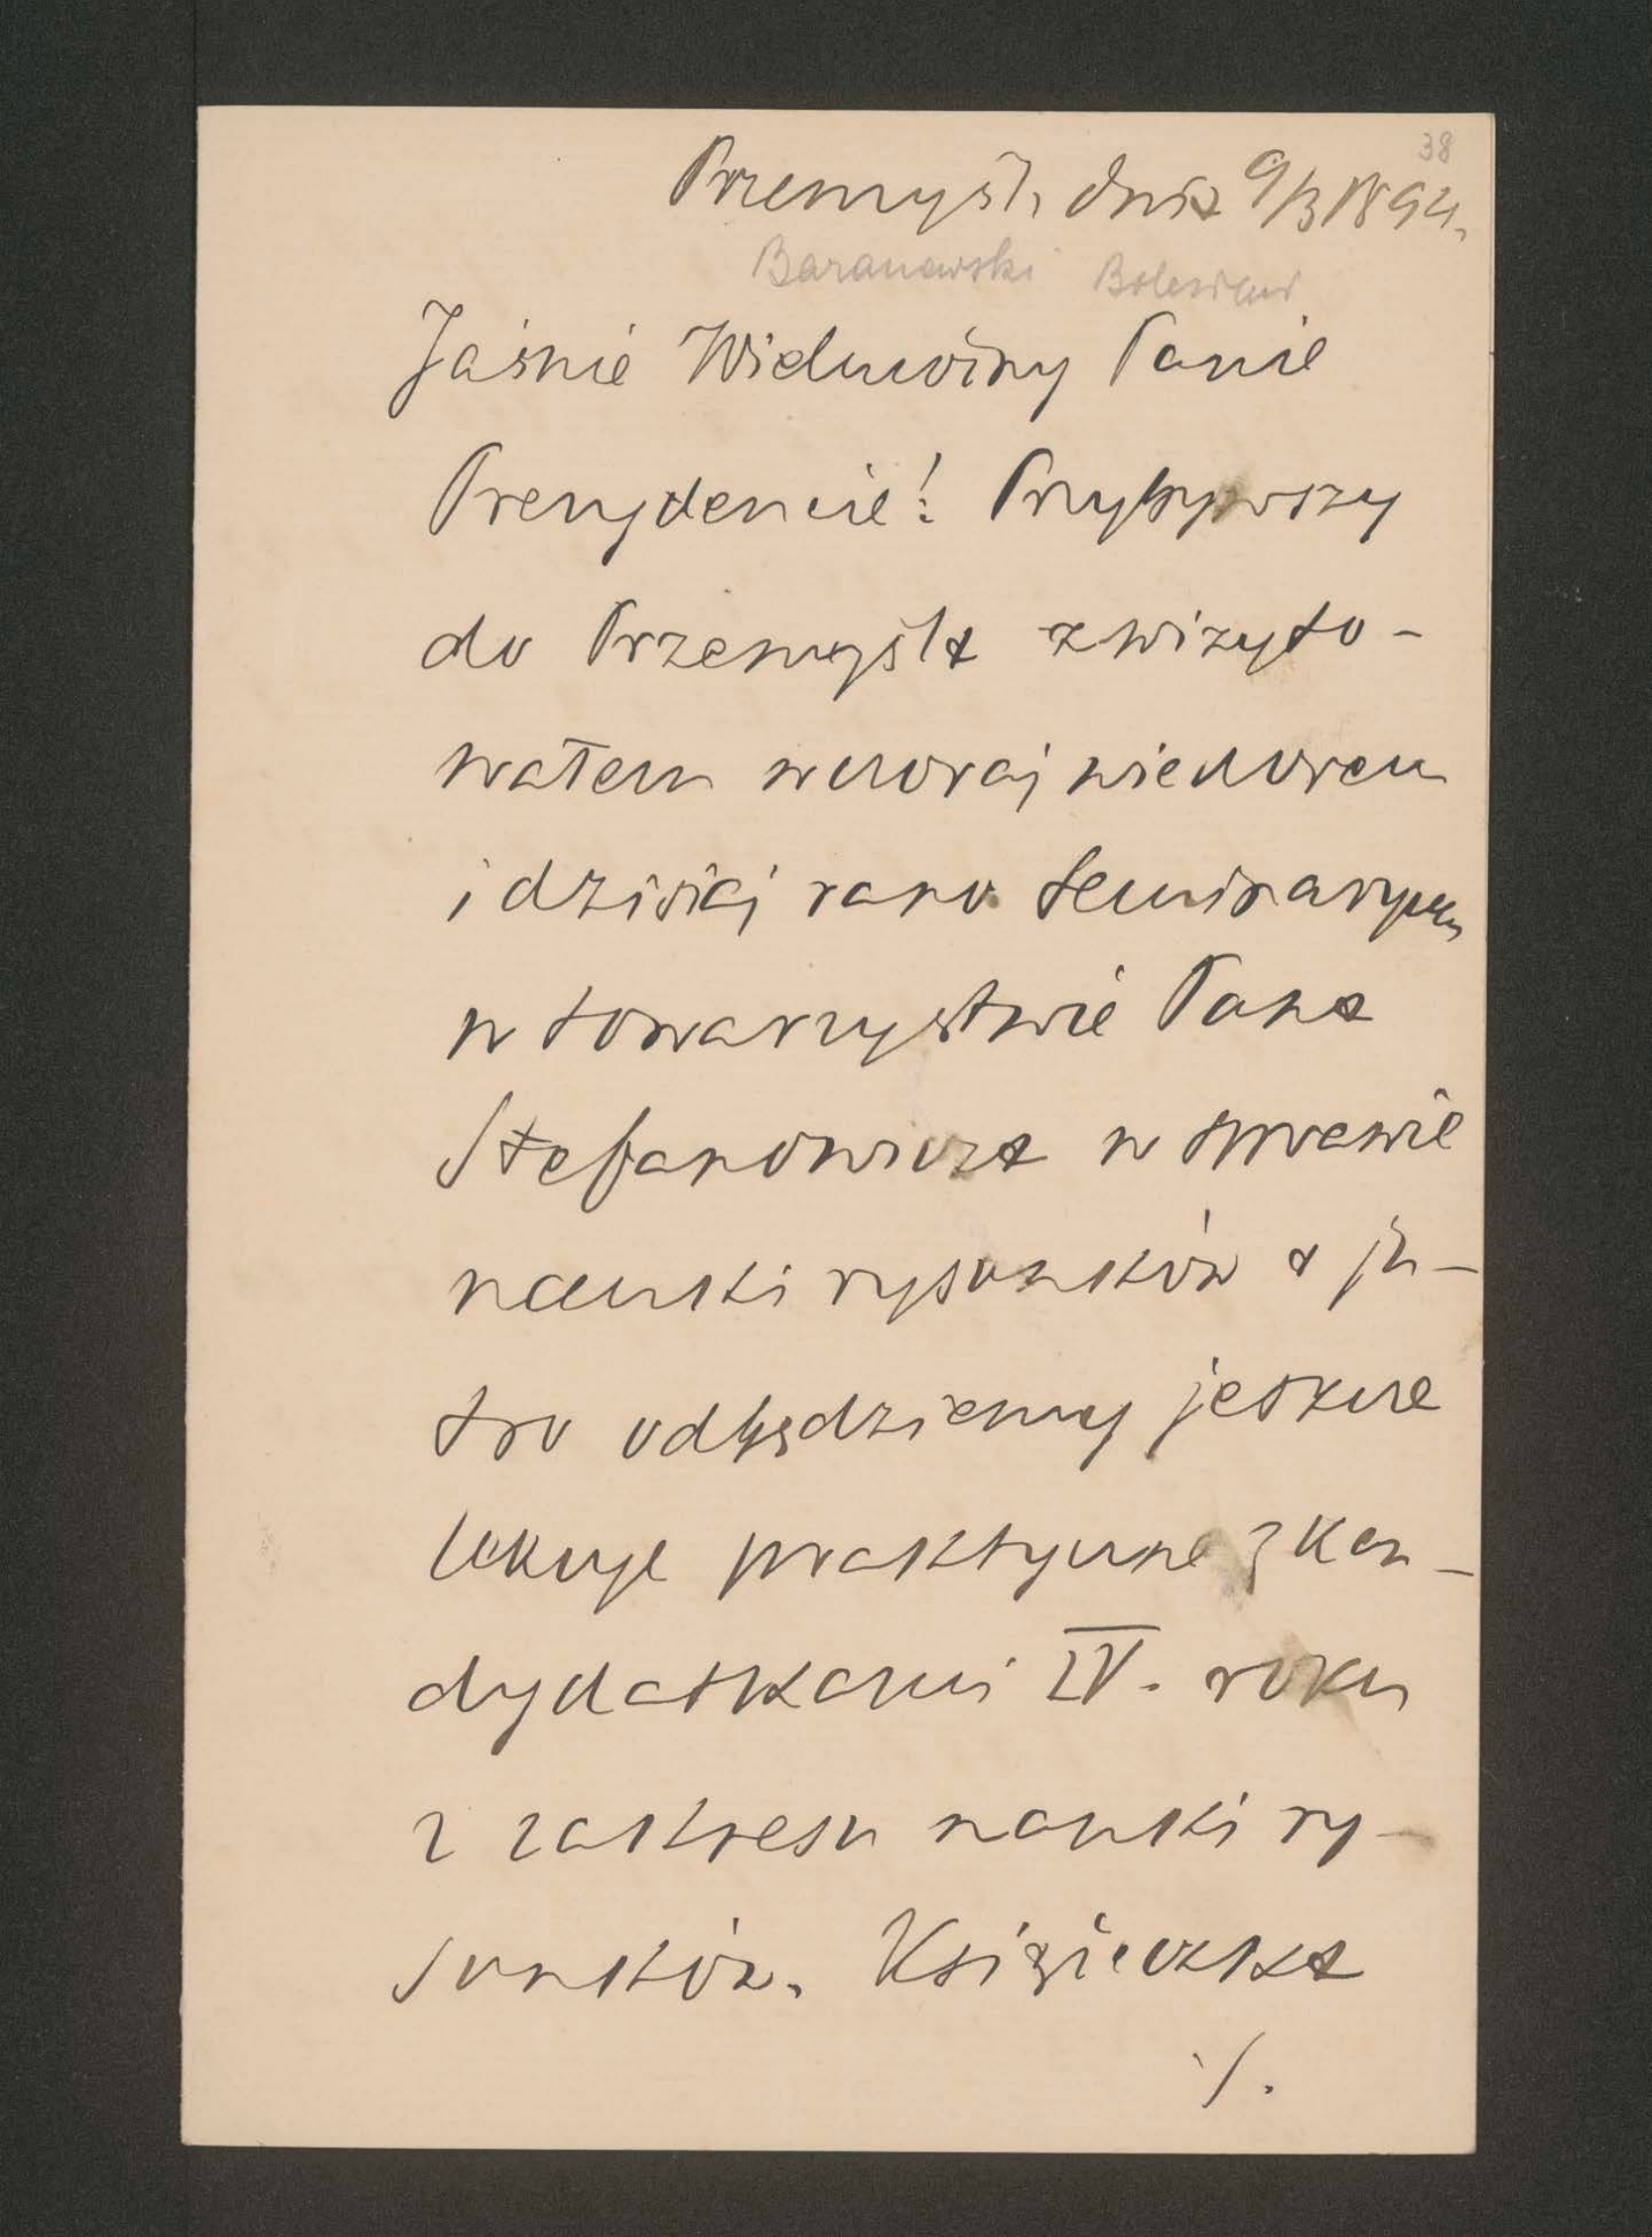 38
Przemyśl, dnia 9/3 1894.
Baranowski Bolesław
Jaśnie Wielmożny Panie
Prezydencie! Przybywszy
do Przemyśla zwizyto-
wałem wczoraj wieczorem
i dzisiaj rano Seminaryum
w towarzystwie Pana
Stefanowicza w sprawie
nauki rysunków a ju-
tro odbędziemy jeszcze
lekcye praktyczne z kan-
dydatkami IV. roku
z zakresu nauki ry-
sunków. Książeczka
./.